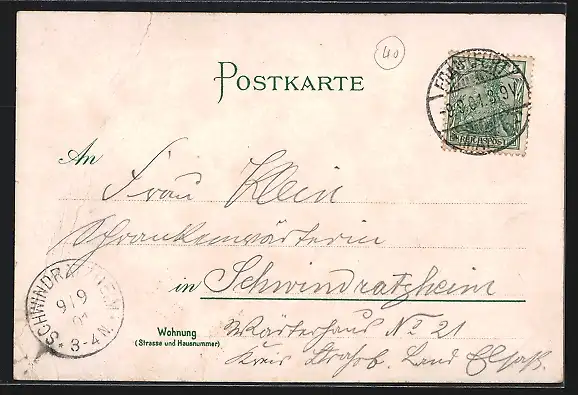 40
POSTKARTE
FRANKFURT
-9.9.01.8-9V.
REICHSPOST
An
Frau Klein
Schrankenwärterin
in Schwindratzheim
SCHWINDRATZHEIM
9/9
01
* 3-4N.
Wohnung
(Strasse und Hausnummer)
Wärterhaus No 21
Kreis Strasb. Land Elsaß.